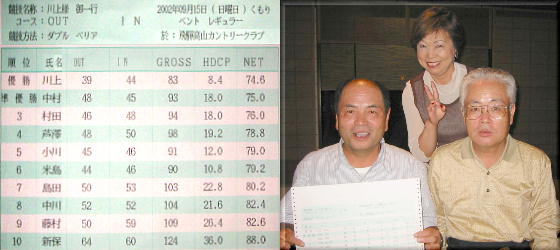 競技名称：川上様 御一行 2002年09月15日（日曜日）くもり
コース：OUT IN ベント レギュラー
競技方法：ダブル ペリア 於：飛騨高山カントリークラブ
順位 氏名 OUT IN GROSS HDCP NET
優勝 川上 39 44 83 8.4 74.6
準優勝 中村 48 45 93 18.0 75.0
3 村田 46 48 94 18.0 76.0
4 芦澤 48 50 98 19.2 78.8
5 小川 45 46 91 12.0 79.0
6 米島 44 46 90 10.8 79.2
7 島田 50 53 103 22.8 80.2
8 中川 52 52 104 21.6 82.4
9 藤村 50 59 109 26.4 82.6
10 新保 64 60 124 36.0 88.0